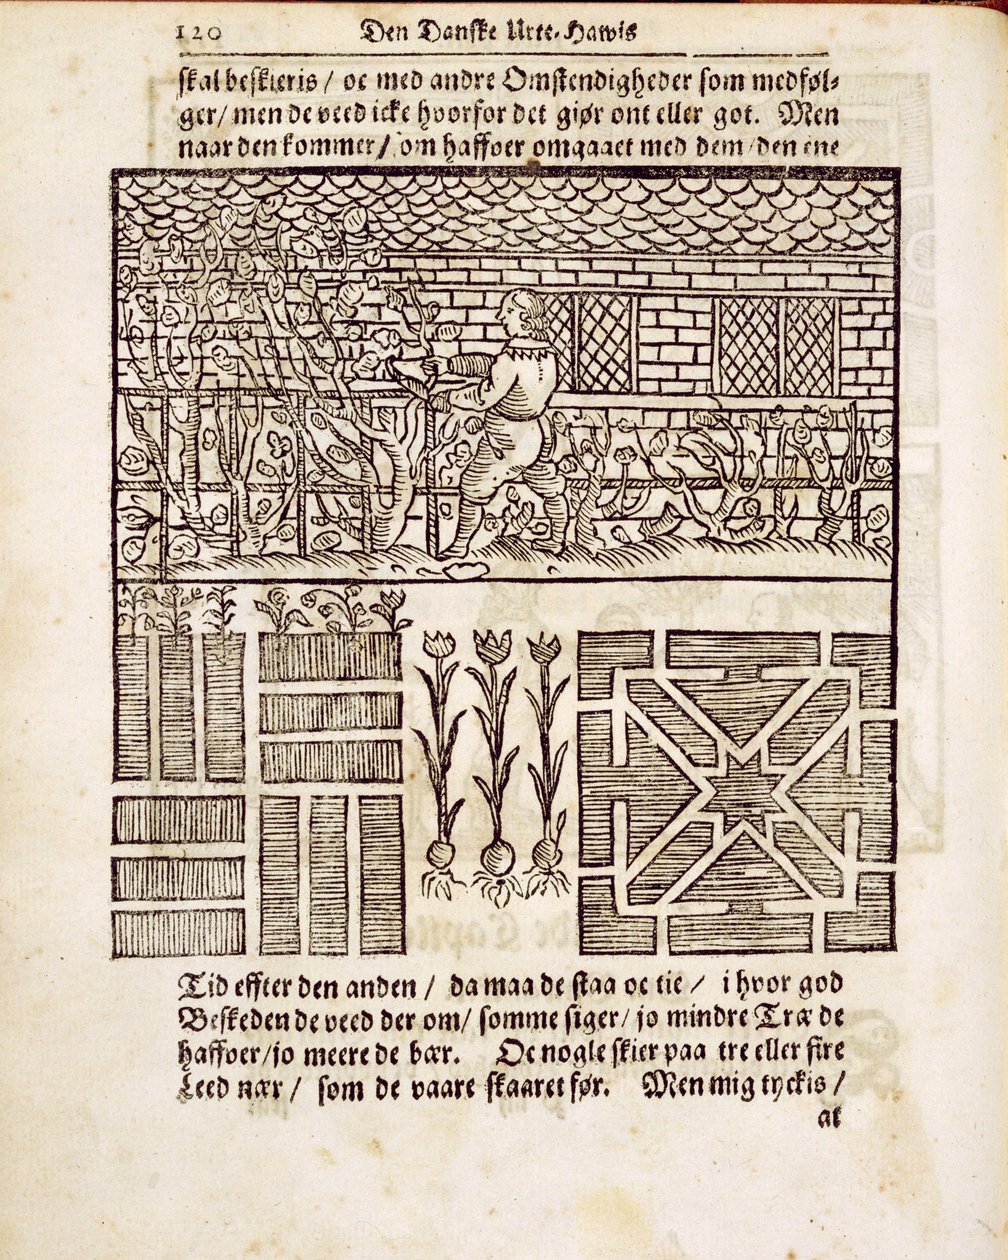 120 Den Danske Urte-Hawis
skal beskieris / oc med andre Omstendigheder som medføl-
ger / men de veed icke hvorfor det giør ont eller got. Men
naar den kommer / som haffver omgaaet med dem / den ene
Tid effter den anden / da maa de staa oc tie / i hvor god
Beskeden de veed der om / somme siger / jo mindre Træ de
haffver / jo meere de bær. Oc nogle skier paa tre eller fire
Leed nær / som de vaare skaaret før. Men mig tyckis /
at